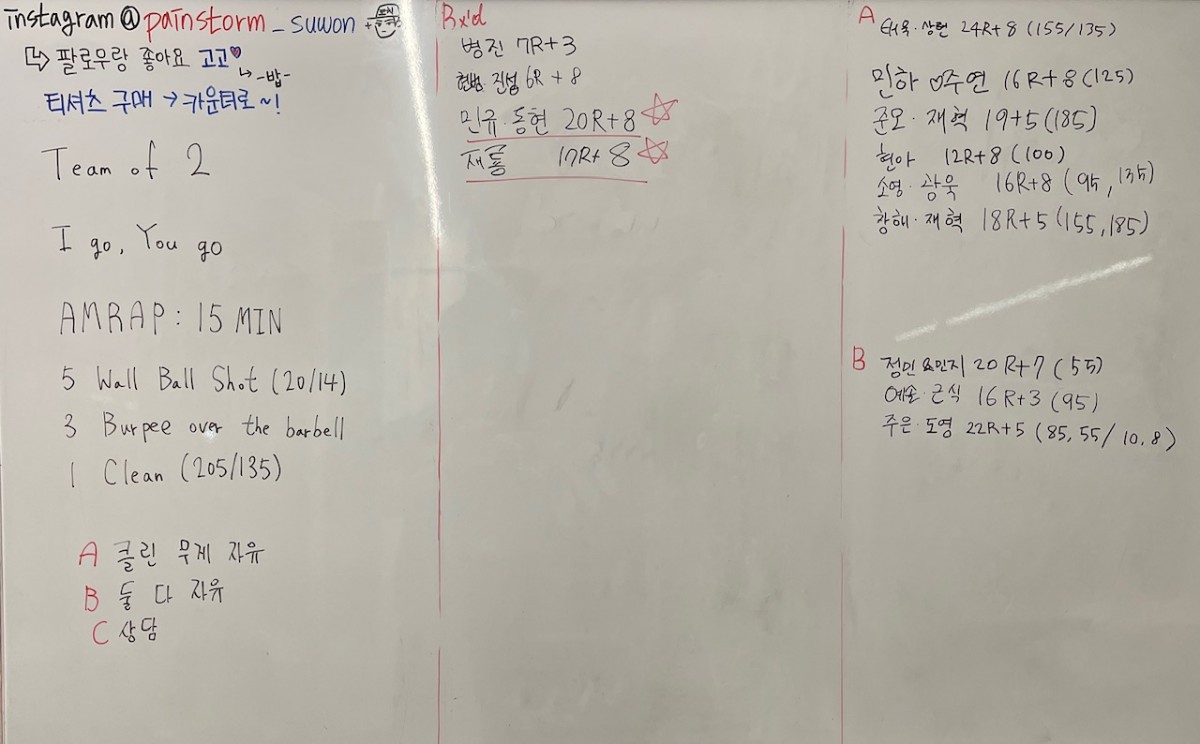 instagram@painstorm_suwon +
팔로우랑 좋아요 고고
-밥-
티셔츠 구매 → 카운터로~!
Team of 2
I go, You go
AMRAP: 15 MIN
5 Wall Ball Shot (20/14)
3 Burpee over the barbell
1 Clean (205/135)
A 클린 무게 자유
B 둘 다 자유
C 상담
Rx'd
병진 7R+3
현범·진성 6R+8
민규·동현 20R+8
재룡 17R+8
A 태욱·상헌 24R+8 (155/135)
민하♡주연 16R+8 (125)
준모·재혁 19+5 (185)
현아 12R+8 (100)
소영·광욱 16R+8 (95, 135)
창해·재혁 18R+5 (155,185)
B 정민&민지 20R+7 (55)
예솔·근식 16R+3 (95)
주은·도영 22R+5 (85, 55/10, 8)